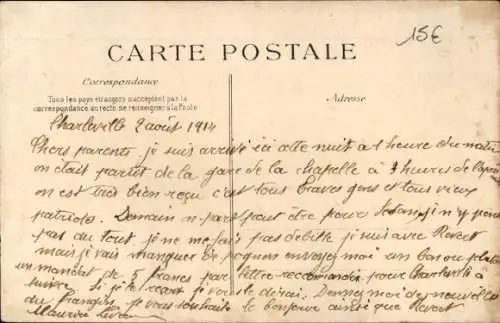 15€
CARTE POSTALE
Correspondance
Tous les pays étrangers n'acceptent pas la
correspondance au recto, se renseigner à la Poste
Adresse
Charleville 2 août 1914
Chers parents je suis arrivé ici cette nuit à 1 heure du matin
on était partit de la gare de la chapelle à 3 heures de l'après
on est très bien reçu c'est tous braves gens et tous vieux
patriots. Demain on part peut être pour Sedan, j'n'y pense
pas du tout, je ne me fais pas de bile je suis avec
mais je vais manquer de pognon envoyez moi un bon ou plutot
un mandat de 5 francs par lettre recommandée pour Charleville à
suivre si je le reçoit je vous le dirai. Donnez moi de nouvelles
du je vous souhaite le bonjour ainsi que
Maurice